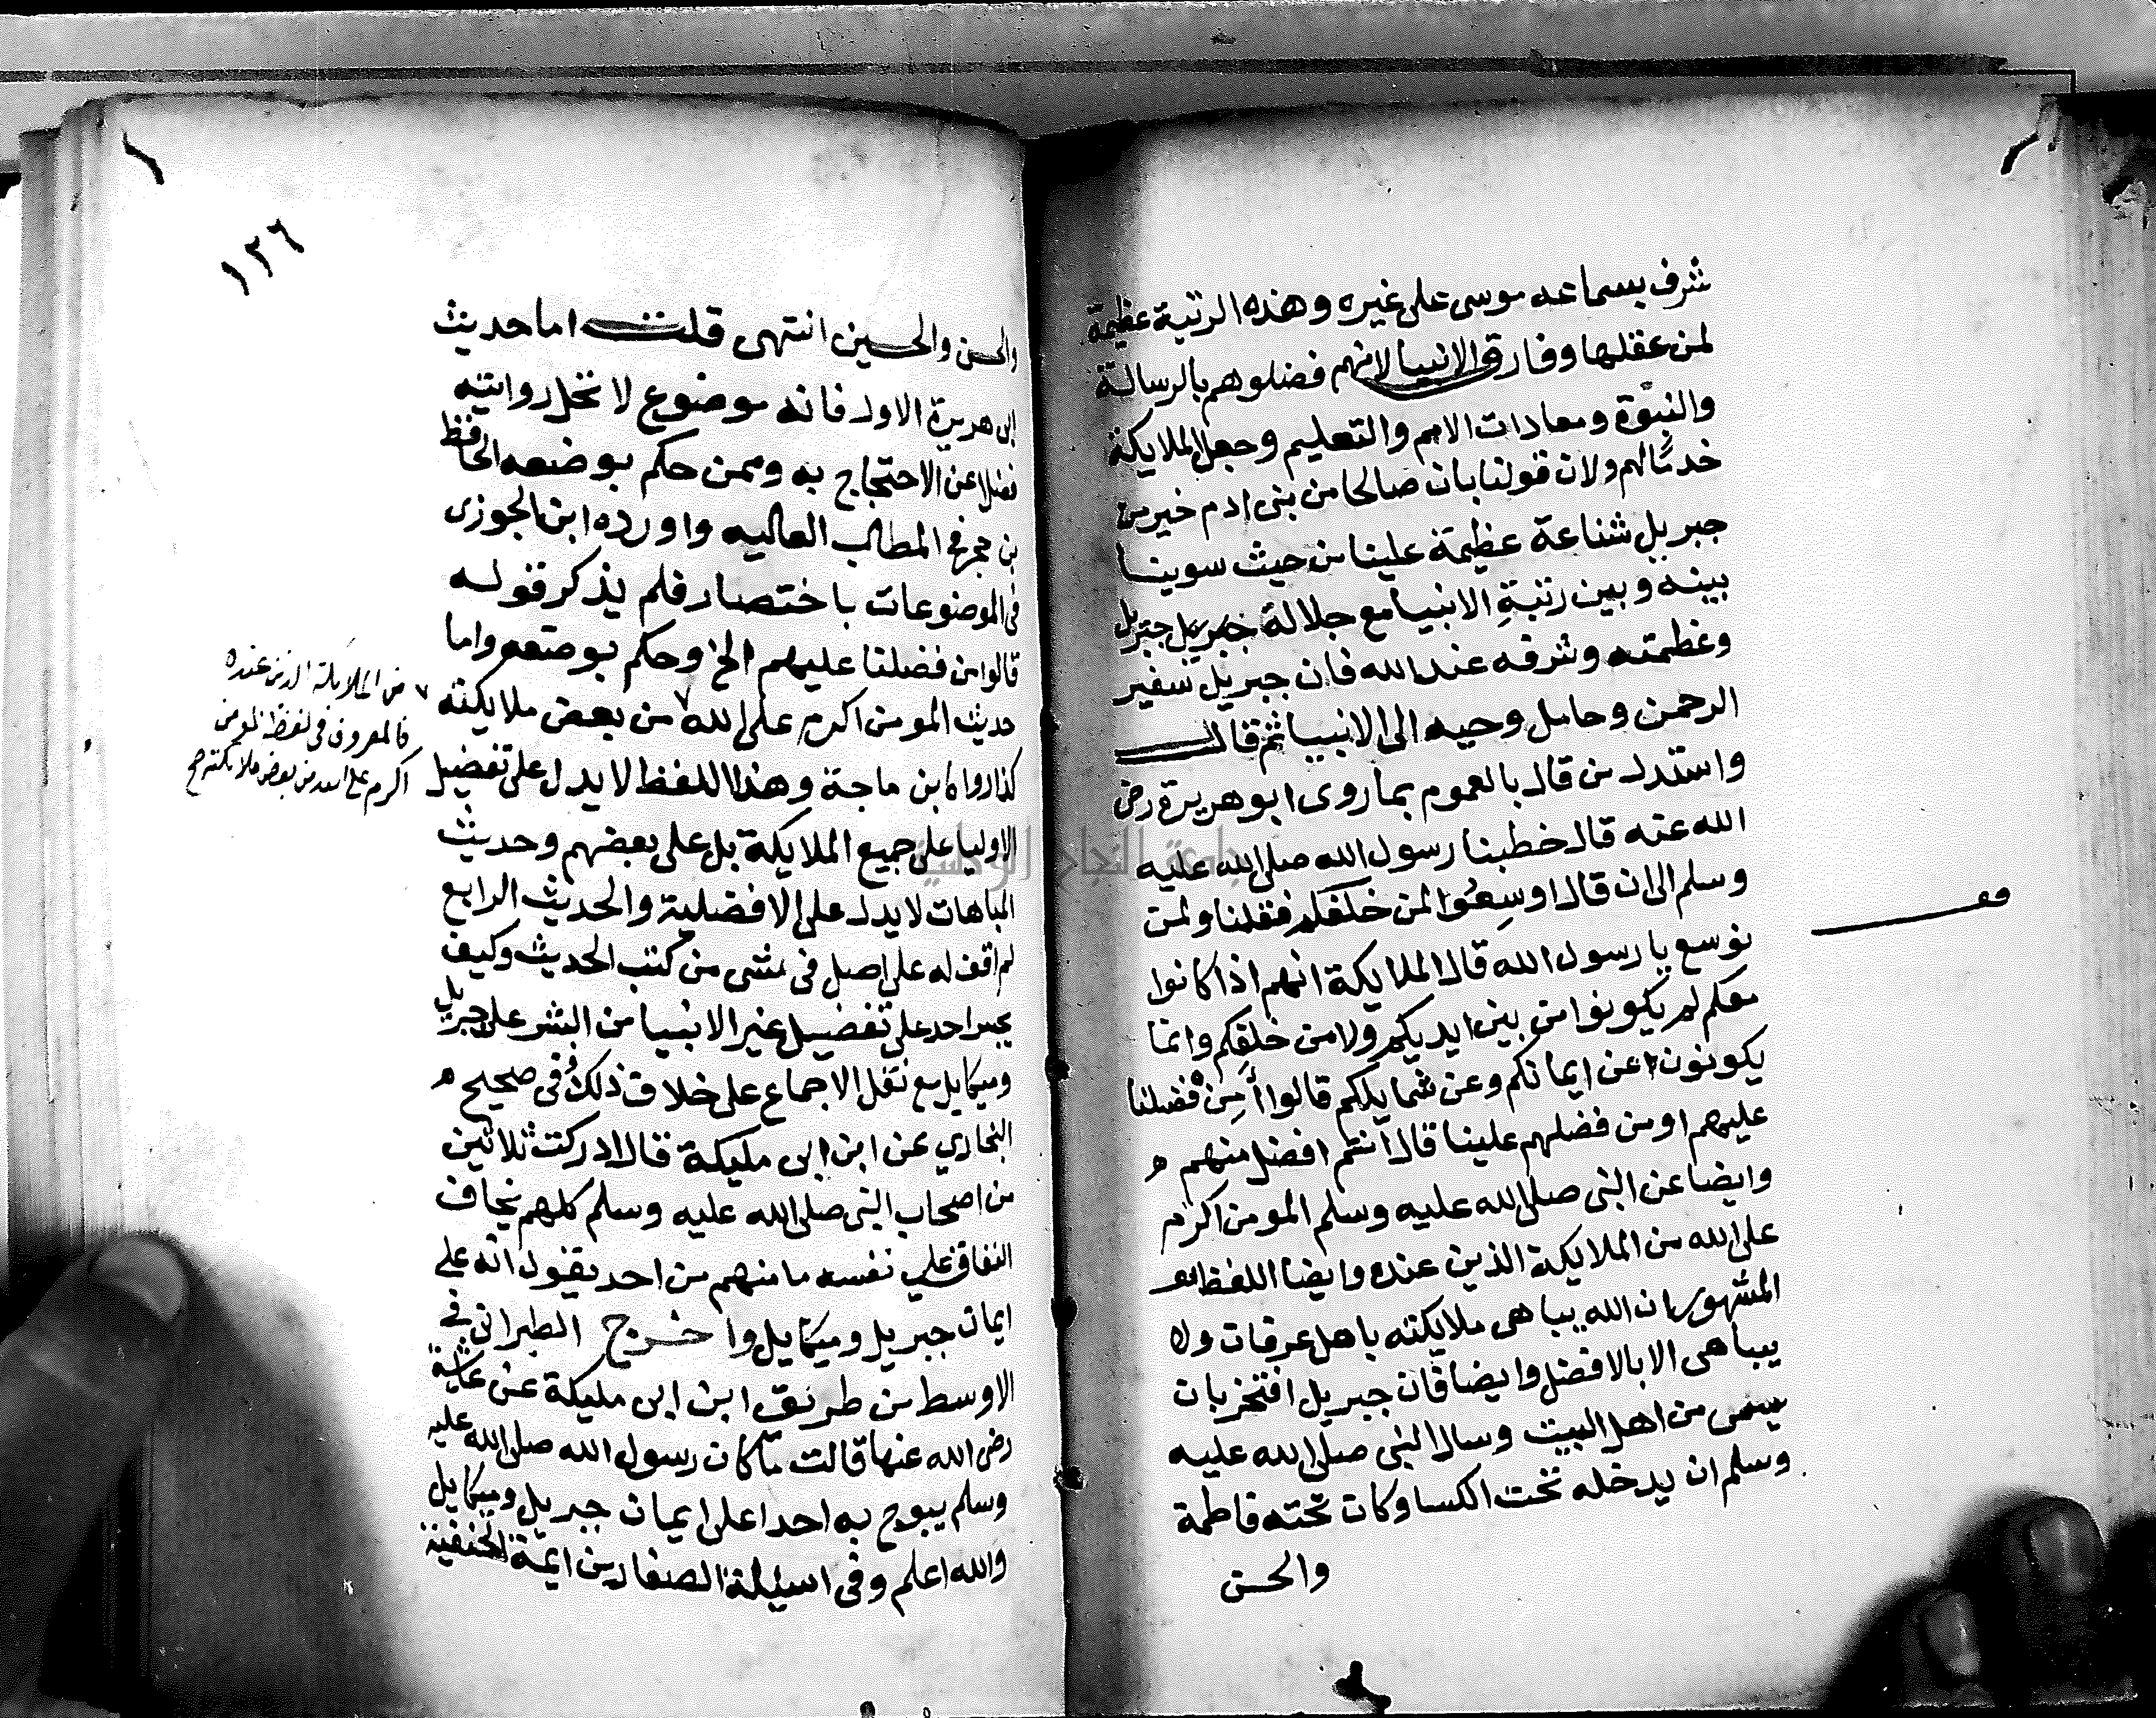 شرف بسماعه موسى على غيره وهذه الرتبة عظيمة
لمن عقلها وفارق الانبيا لانهم فضلوهم بالرسالة
والنبوة ومعادات الامم والتعليم وجعل الملايكة
خدما لهم ولان قولنا بان صالحا من بنى ادم خير من
جبريل شناعة عظيمة علينا من حيث سوينا
بينه وبين رتبة الانبيا مع جلالة جبريل
وعظمته وشرفه عند الله فان جبريل سفير
الرحمن وحامل وحيه الى الانبيا ثم قال
واستدل من قال بالعموم بما روى ابو هريرة رضى
الله عنه قال خطبنا رسول الله صلى الله عليه
وسلم الى ان قال اوسعوا لمن خلفكم فقلنا ولمن
نوسع يا رسول الله قال الملايكة انهم اذا كانوا
معكم لم يكونوا من بين ايديكم ولا من خلفكم وانما
يكونون عن ايمانكم وعن شمايلكم قالوا أمن فضلنا
عليهم او من فضلهم علينا قال أنتم افضل منهم
وايضا عن النبى صلى الله عليه وسلم المومن اكرم
على الله من الملايكة الذين عنده وايضا اللفظ
المشهور ان الله يباهى ملايكته باهل عرفات ولا
يباهى الا بالافضل وايضا فان جبريل افتخر بان
يسمى من اهل البيت وسال النبى صلى الله عليه
وسلم ان يدخله تحت الكسا وكان تحته فاطمة
والحسن
١٢٦
والحسن والحسين انتهى قلت اما حديث
ابى هريرة الاول فانه موضوع لا تحل روايته
فضلا عن الاحتجاج به وممن حكم بوضعه الحافظ
بن حجر فى المطالب العاليه واورده ابن الجوزى
فى الموضوعات باختصار فلم يذكر قوله
قالوا من فضلنا عليهم الخ وحكم بوضعه واما
حديث المومن اكرم على الله من بعض ملايكته
كذا رواه ابن ماجة وهذا اللفظ لا يدل على تفضيل
الاوليا على جميع الملايكة بل على بعضهم وحديث
المباهات لا يدل على الافضلية والحديث الرابع
لم اقف له على اصل فى شى من كتب الحديث وكيف
يجسر احد على تفضيل غير الانبيا من البشر على جبريل
وميكايل مع نقل الاجماع على خلاف ذلك وفى صحيح
البخاري عن ابن ابى مليكة قال ادركت ثلاثين
من اصحاب النبى صلى الله عليه وسلم كلهم يخاف
النفاق على نفسه ما منهم من احد يقول انه على
ايمان جبريل وميكايل واخرج الطبرانى فى
الاوسط من طريق ابن ابى مليكة عن عايشة
رضى الله عنها قالت ما كان رسول الله صلى الله عليه
وسلم يبوح به احدا على ايمان جبريل وميكايل
والله اعلم وفى اسيلة الصفار من ايمة الحنفية
من الملايكة الذين عنده
فالمعروف فى لفظه المومن
اكرم على الله من بعض ملايكته
جامعة النجاح الوطنية